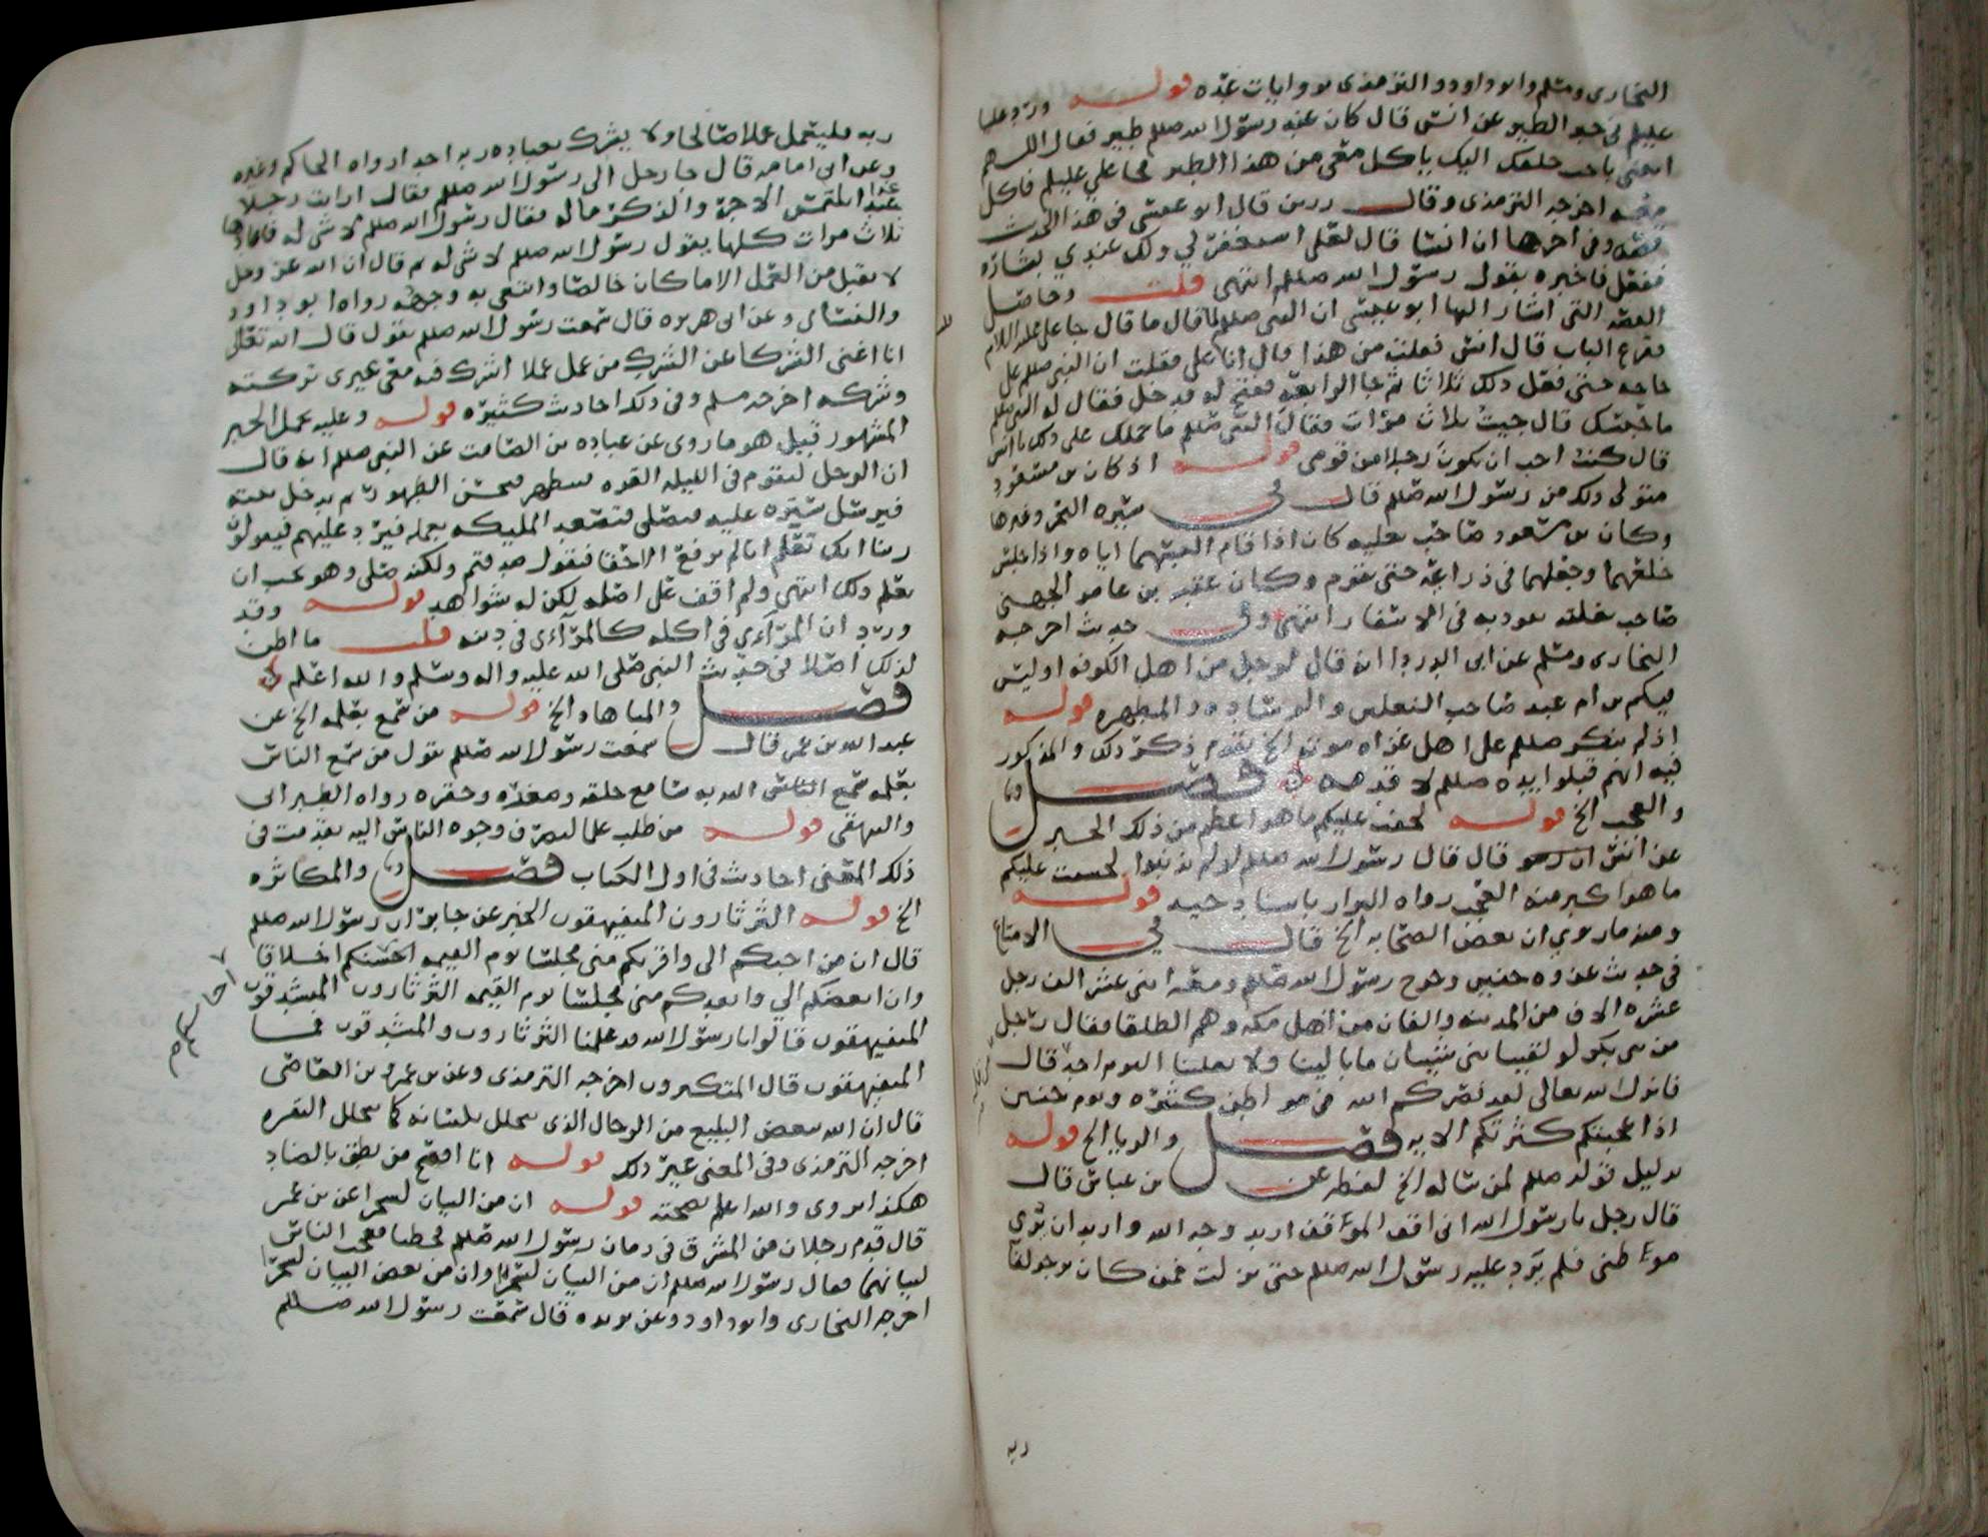 البخارى ومسلم وابو داود والترمذى بروايات عده قوله ورد علينا
عليلم في خبر الطير عن انس قال كان عند رسول الله صللم طير فقال اللهم
ايتني باحب خلقك اليك ياكل معي من هذا الطير فجا علي عليلم فاكل
معه اخرجه الترمذى وقال رزين قال ابو عيسى في هذا الحديث
قصه وفي اخرها ان انسا قال لعلي استغفر لي ولك عندي بشاره
ففعل فاخبره بقول رسول الله صللم انتهى قلت وحاصل
القصه التي اشار اليها ابو عيسى ان النبي صللم لما قال ما قال جا علي عليه السلام
فقرع الباب قال انس فقلت من هذا قال انا علي فقلت ان النبي صللم على
حاجه حتى فعل ذلك ثلاثا ثم جا الرابعه ففتح له فدخل فقال له النبي صللم
ما حبسك قال جيت ثلاث مرات فقال النبي صللم ما حملك على ذلك يا انس
قال كنت احب ان يكون رجلا من قومي قوله اذ كان بن مسعود
متولى ذلك من رسول الله صللم قال في سيره اليعمرى وغيرها
وكان بن مسعود صاحب نعليه كان اذا قام البسهما اياه واذا جلس
خلعهما وجعلهما في ذراعيه حتى يقوم وكان عقبه بن عامر الجهني
صاحب بغلته يقود به في الاسفار انتهى وفي حديث اخرجه
البخارى ومسلم عن ابى الدردا انه قال لرجل من اهل الكوفه اوليس
فيكم بن ام عبد صاحب النعلين والوساده والمطهره قوله
اذ لم ينكر صللم على اهل غزاه موته الخ تقدم ذكر ذلك والمذكور
فيه انهم قبلوا يده صللم لا قدمه فصل
والعجب الخ قوله لخفت عليكم ما هو اعظم من ذلك الخبر
عن انس قال قال رسول الله صللم لو لم تذنبوا لخشيت عليكم
ما هو اكبر منه العجب رواه البزار باسناد جيد قوله
ومنه ما روي ان بعض الصحابه الخ قال في الامتاع
في حديث غزوه حنين وخرج رسول الله صللم ومعه اثنى عشر الف رجل
عشره الاف من المدينه والفان من اهل مكه وهم الطلقا فقال رجل
من بني بكر لو لقينا بني شيبان ما بالينا ولا يغلبنا اليوم احد قال
فانزل الله تعالى لقد نصركم الله في مواطن كثيره ويوم حنين
اذ اعجبتكم كثرتكم الايه فصل والريا الخ قوله
بدليل قوله صللم لمن ساله الخ لفظه عن بن عباس قال
قال رجل يا رسول الله اني اقف المواقف اريد وجه الله واريد ان يرى
موطني فلم يرد عليه رسول الله صللم حتى نزلت فمن كان يرجو لقا
ربه
ربه فليعمل عملا صالحا ولا يشرك بعباده ربه احدا رواه الحاكم وغيره
وعن ابى امامه قال جا رجل الى رسول الله صللم فقال ارايت رجلا
غزا يلتمس الاجر والذكر ما له فقال رسول الله صللم لا شي له فاعادها
ثلاث مرات كلها يقول رسول الله صللم لا شي له ثم قال ان الله عز وجل
لا يقبل من العمل الا ما كان خالصا وابتغي به وجهه رواه ابو داود
والنسائى وعن ابى هريره قال سمعت رسول الله صللم يقول قال الله تعالى
انا اغنى الشركا عن الشرك من عمل عملا اشرك فيه معي غيرى تركته
وشركه اخرجه مسلم وفى ذلك احاديث كثيره قوله وعليه يحمل الخبر
المشهور قيل هو ما روى عن عباده بن الصامت عن النبي صللم انه قال
ان الرجل ليقوم في الليله القره فيتطهر فيحسن الطهور ثم يدخل بيته
فيرسل ستره عليه فيصلي فتصعد المليكه بعمله فيرد عليهم فيقولون
ربنا انك تعلم انا لم نرفع الا حقا فيقول صدقتم ولكنه صلى وهو يحب ان
يعلم ذلك انتهى ولم اقف على اصله لكن له شواهد قوله وقد
ورد ان المرآءى في اكله كالمرآءى في دينه قلت ما اظن
لذلك اصلا في حديث النبي صلى الله عليه واله وسلم والله اعلم
فصل والمباهاه الخ قوله من سمع بعلمه الخ عن
عبد الله بن عمر قال سمعت رسول الله صللم يقول من سمع الناس
بعلمه سمع الله به سامع خلقه وصغره وحقره رواه الطبرانى
والبيهقى قوله من طلب علما ليصرف وجوه الناس اليه تقدمت في
ذلك المعنى احاديث في اول الكتاب فصل والمكاثره
الخ قوله الثرثارون المتفيهقون الخبر عن جابر ان رسول الله صللم
قال ان من احبكم الي واقربكم مني مجلسا يوم القيمه احسنكم اخلاقا
وان ابغضكم الي وابعدكم مني مجلسا يوم القيمه الثرثارون المتشدقون
المتفيهقون قالوا يا رسول الله قد علمنا الثرثارون والمتشدقون فما
المتفيهقون قال المتكبرون اخرجه الترمذى وعن بن عمرو بن العاصى
قال ان الله يبغض البليغ من الرجال الذى يتخلل بلسانه كما تتخلل البقره
اخرجه الترمذى وفى المعنى غير ذلك قوله انا افصح من نطق بالضاد
هكذا يروى والله اعلم بصحته قوله ان من البيان لسحرا عن بن عمر
قال قدم رجلان من المشرق في زمان رسول الله صللم فخطبا فعجب الناس
لبيانهما فقال رسول الله صللم ان من البيان لسحرا وان من بعض البيان لسحرا
اخرجه البخارى وابو داود وعن بريده قال سمعت رسول الله صللم